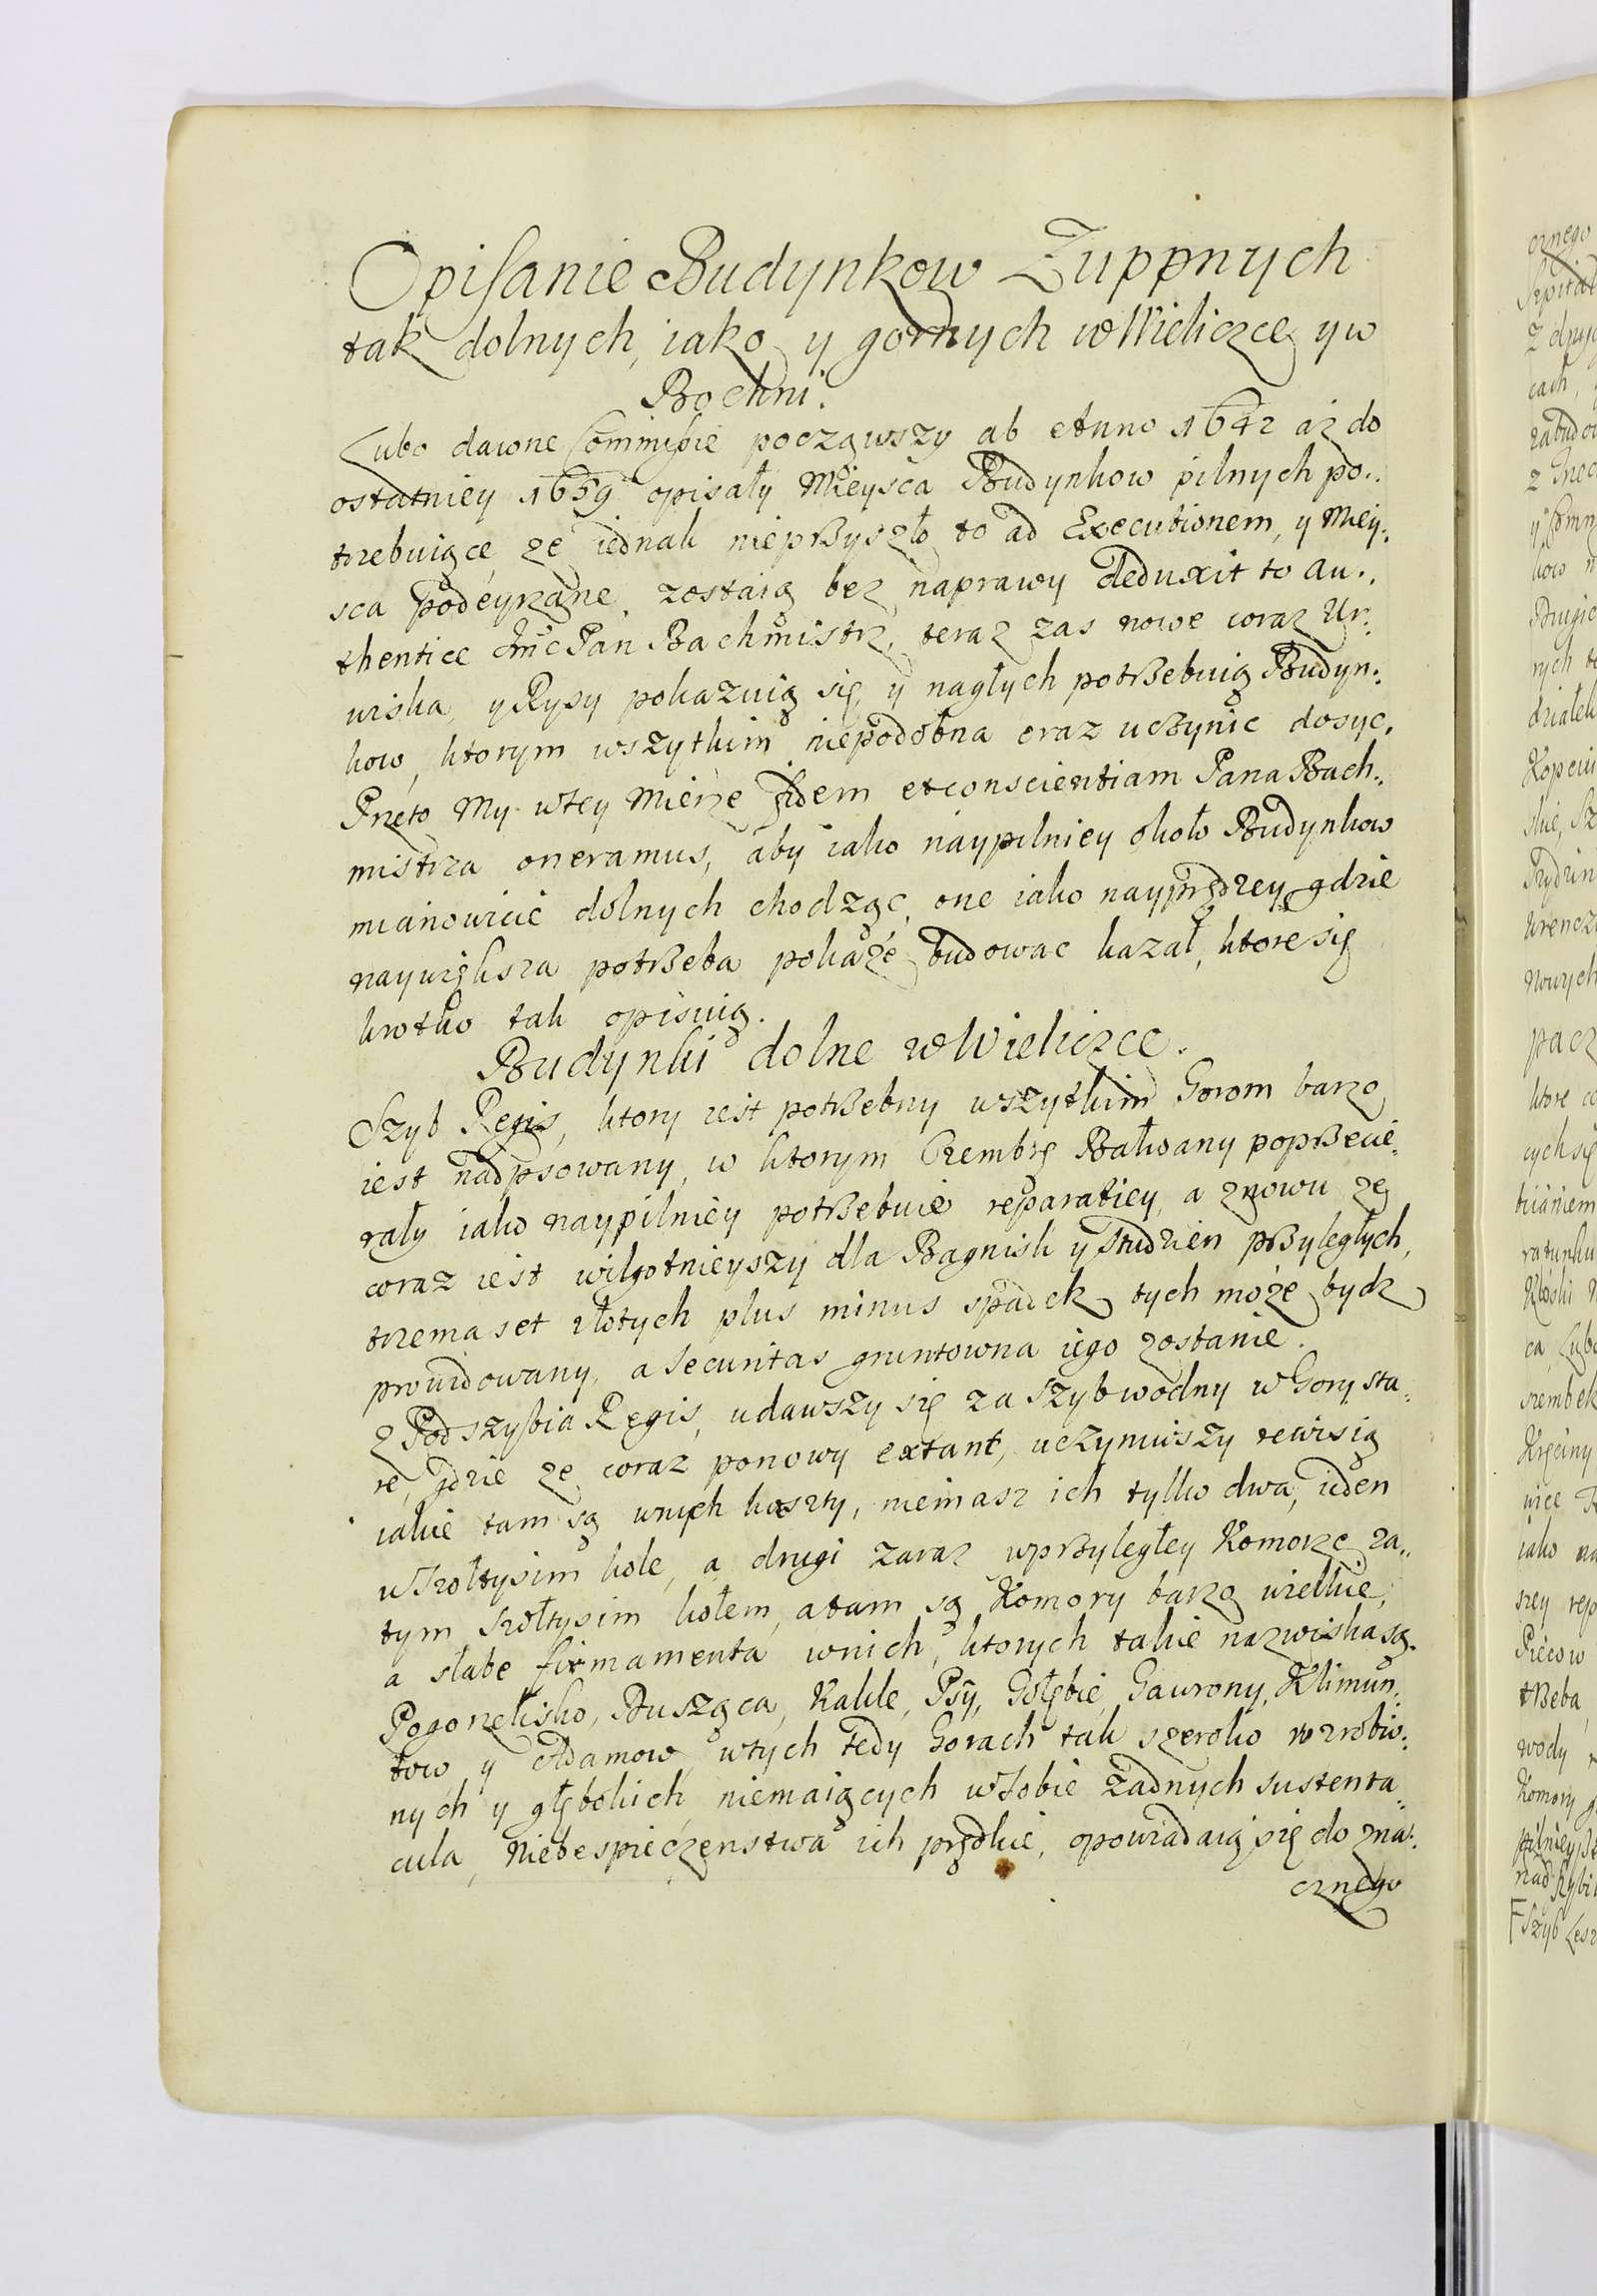 Opisanie Budynkow Zuppnych
tak dolnych, iako y gornych w Wieliczce y w
Bochni.
Lubo dawne Commissie począwszy ab Anno 1642 aż do
ostatniey 1659 opisały Mieysca Budynkow pilnych po..
trzebuiące, ze iednak nieprzyszło to ad Executionem, y Miey:
sca podeyrzane, zostaią bez naprawy deduxit to au..
thentice Jmc Pan Bachmistrz, teraz zas nowe coraz Ur:
wiska, y Rysy pokazuią się, y nagłych potrzebuią Budyn:
kow, ktorym wszytkim niepodobna oraz uczynic dosyc,
Przeto My w tey Mierze fidem et conscientiam Pana Bach:
mistrza oneramus, aby iako naypilniey około Budynkow
mianowicie dolnych chodząc, one iako nayprędzey gdzie
naywiększa potrzeba pokaże budowac kazał, ktore się
krotko tak opisuią.
Budynki dolne w Wieliczce.
Szyb Regis, ktory iest potrzebny wszytkim Gorom barzo
iest nadpsowany, w ktorym Czembrę Bałwany poprzecie:
rały iako naypilniey potrzebuie reparatiey, a znowu ze
coraz iest wilgotnieyszy dla Bagnisk y studzien przyległych,
trzema set złotych plus minus spadek tych może bydz
prowidowany, a securitas gruntowna iego zostanie.
Z Pod szybia Regis, udawszy się za szyb wodny w Gory sta:
re, gdzie ze coraz ponowy extant, uczyniwszy rewisią
iakie tam są w nich kaszty, niemasz ich tylko dwa, ieden
w Szołtysim kole, a drugi zaraz w przyległey Komorze za..
tym szołtysim kołem, a tam są Komory barzo wielkie,
a słabe firmamenta w nich, ktorych takie nazwiska są.
Pogorzelisko, Dusząca, Kalde, Psy, Gołębie, Gawrony, Klimun:
tow, y Adamow, w tych tedy Gorach tak szeroko wzrobio:
nych y głębokich niemaiących w sobie żadnych sustenta:
cula, Niebespieczenstwa ich prędkie, opowiadaią się do zna:
cznego